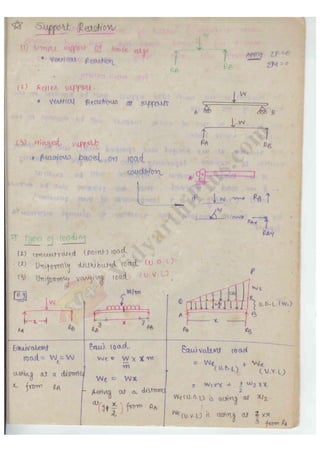 Support Reaction
(1) Simple Support or knife edge
• Vertical Reaction
RA
RB
Apply ΣF=0
ΣM=0
(2) Roller support
• Vertical Reactions at supports
W
A
B
W
RA
RB
(3) Hinged support
• Reactions based on load
condition
A
W
RA
W
RAx
RAy
Types of loading
(1) Concentrated (point) load
(2) Uniformly distributed load (U.D.L)
(3) Uniformly varying load (U.V.L)
W
x
RA
RB
W N/m
y
x
RA
RB
P
W2
U.D.L (W1)
A
B
x
RA
RB
Equivalent
load = We = W
acting at a distance
x from RA
Equi. load
We = W/m × x m
We = Wx
Acting at a distance
at (y + x/2) from RA
Equivalent load
= We(U.D.L) + We(U.V.L)
= W1x + 1/2 W2 x x
We(U.D.L) is acting at x/2
We(U.V.L) is acting at 2/3 x x
from RA